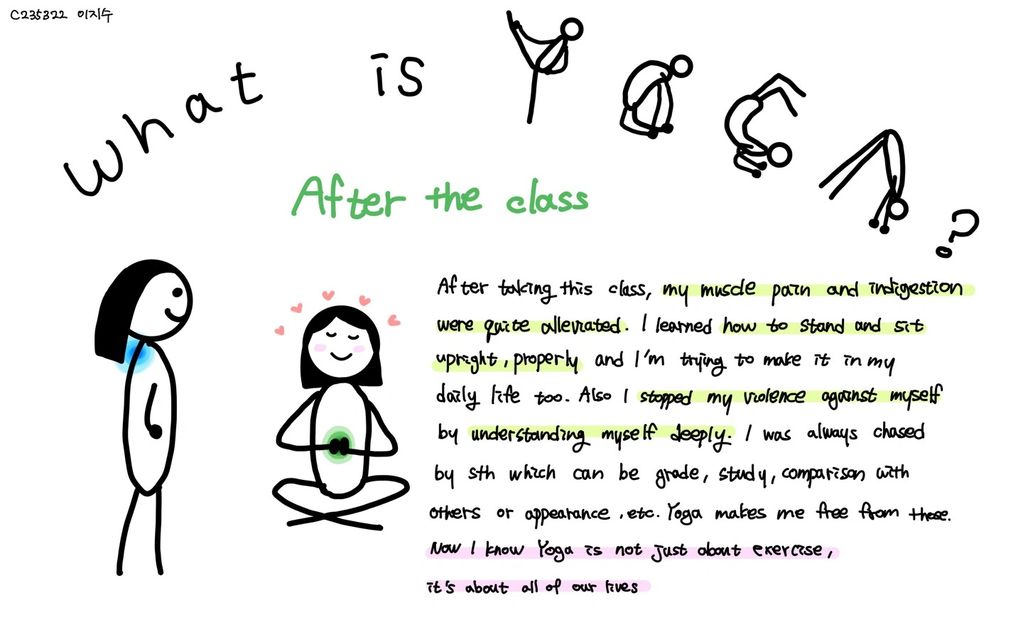 C235322 이지수
what is YOGA?
After the class
After taking this class, my muscle pain and indigestion
were quite alleviated. I learned how to stand and sit
upright, properly and I'm trying to make it in my
daily life too. Also I stopped my violence against myself
by understanding myself deeply. I was always chased
by sth which can be grade, study, comparison with
others or appearance, etc. Yoga makes me free from these.
Now I know Yoga is not just about exercise,
it's about all of our lives